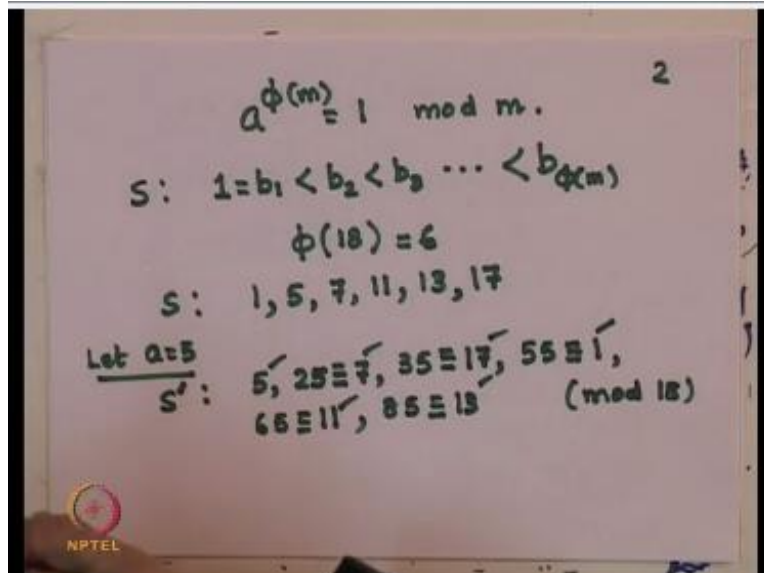 2
a^ϕ(m) ≡ 1 mod m.
S: 1=b₁ < b₂ < b₃ ... < b_ϕ(m)
ϕ(18) = 6
S: 1, 5, 7, 11, 13, 17
Let a=5
S': 5✓, 25≡7✓, 35≡17✓, 55≡1✓,
65≡11✓, 85≡13✓ (mod 18)
NPTEL